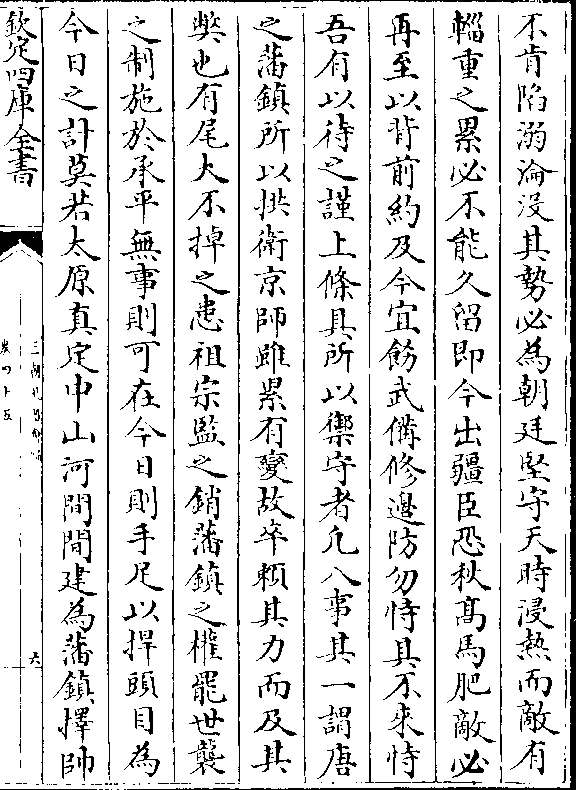 不肯陷溺淪没其勢必為朝廷堅守天時浸熱而敵有
輜重之累必不能久留即今出疆臣恐秋髙馬肥敵必
再至以背前約及今宜飭武備修邉防勿恃其不來恃
吾有以待之謹上條具所以禦守者凡八事其一謂唐
之藩鎮所以拱衛京師雖累有變故卒頼其力而及其
弊也有尾大不掉之患祖宗監之銷藩鎮之權罷世襲
之制施於承平無事則可在今日則手足以捍頭目為
今日之計莫若太原真定中山河間間建為藩鎮擇帥
欽定四庫全書
卷四十五
六